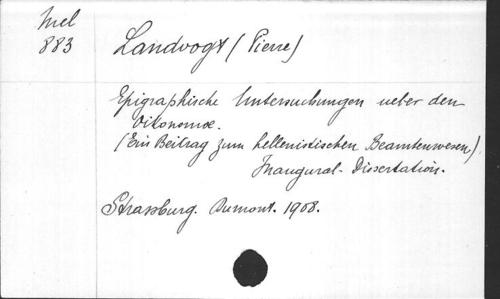 Mel
883
Landvogt (Pierre)
Epigraphische Untersuchungen ueber den
Oikonomoe.
(Ein Beitrag zum hellenistischen Beamtenwesen)
Inaugural-Dissertation.
Strassburg. Dumont. 1908.